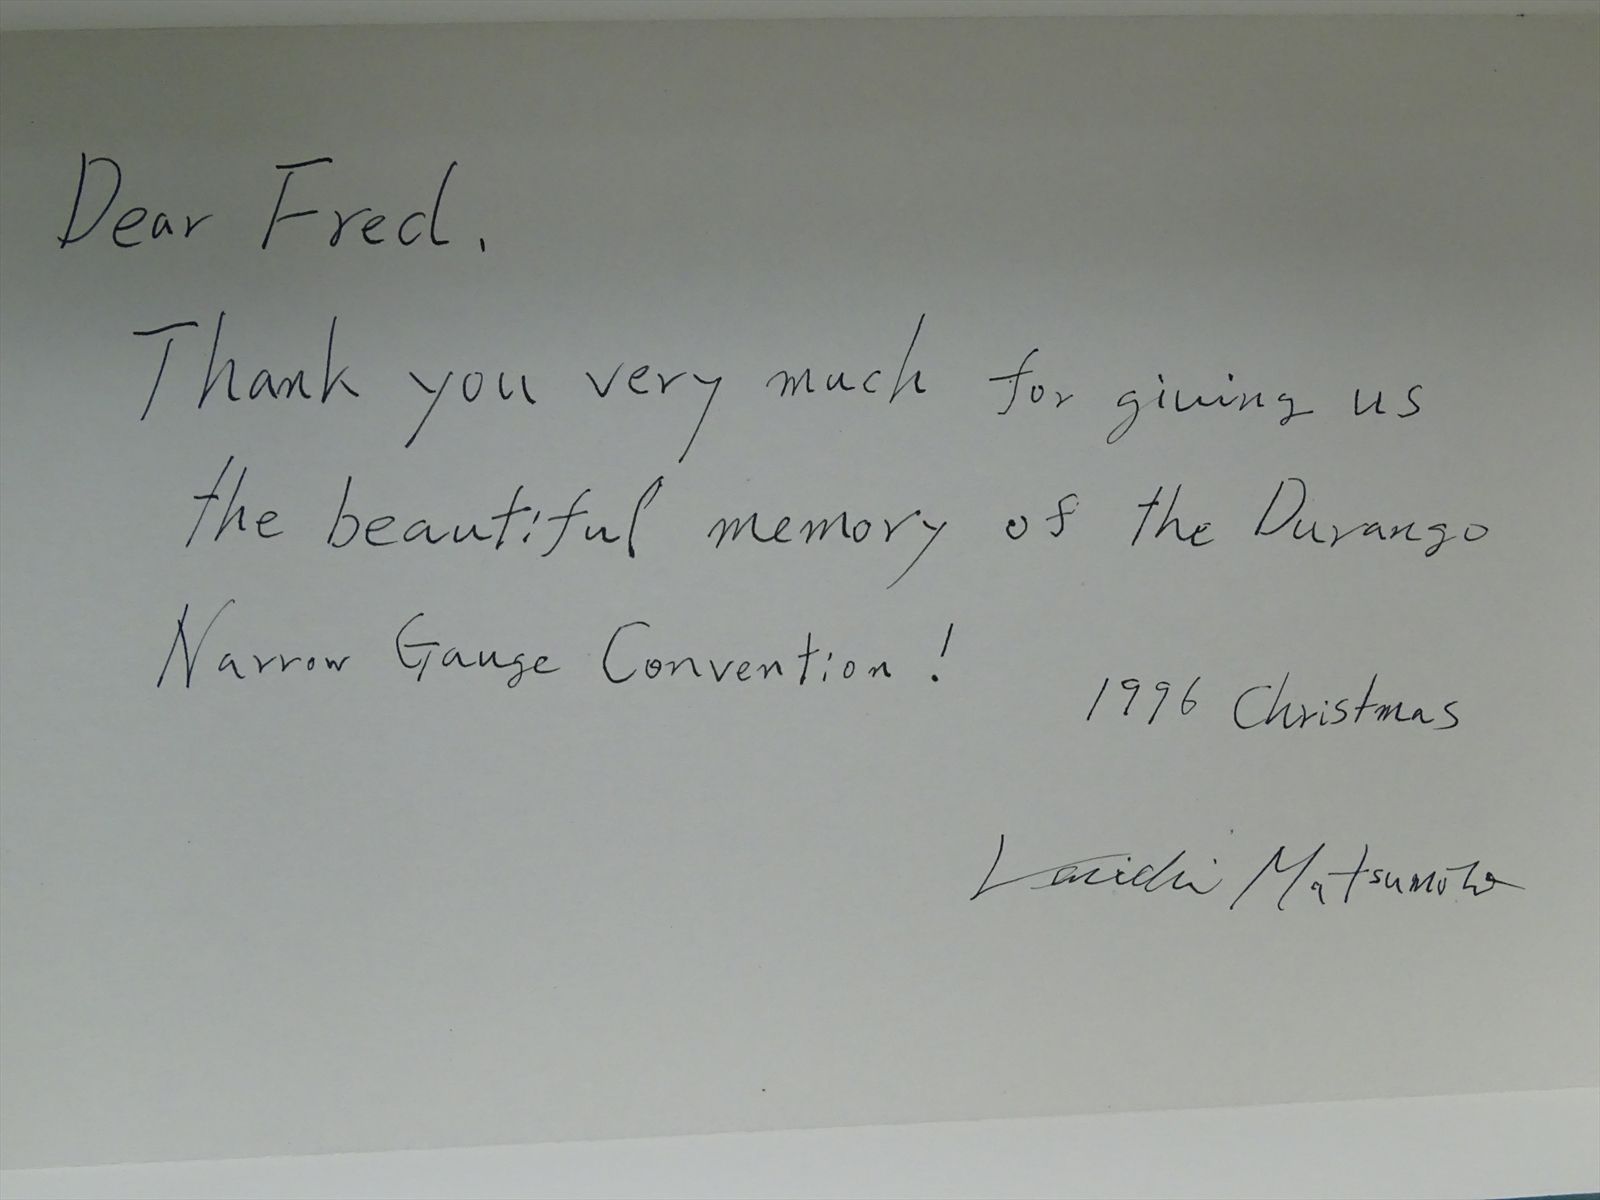 Dear Fred,
Thank you very much for giving us
the beautiful memory of the Durango
Narrow Gauge Convention!
1996 Christmas
Matsumoto